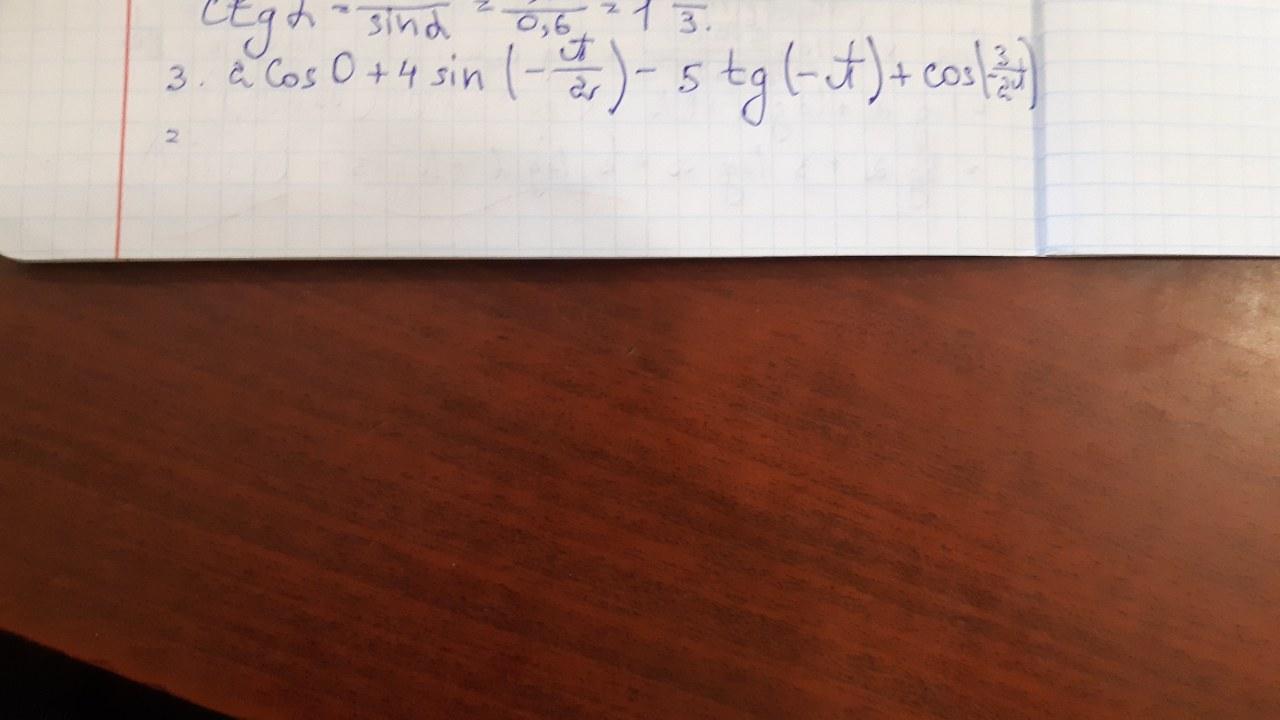 ctg α = / sin α = / 0,6 = 1 / 3.
3. 2 cos 0 + 4 sin (-π/2) - 5 tg (-π) + cos(3/2π)
=